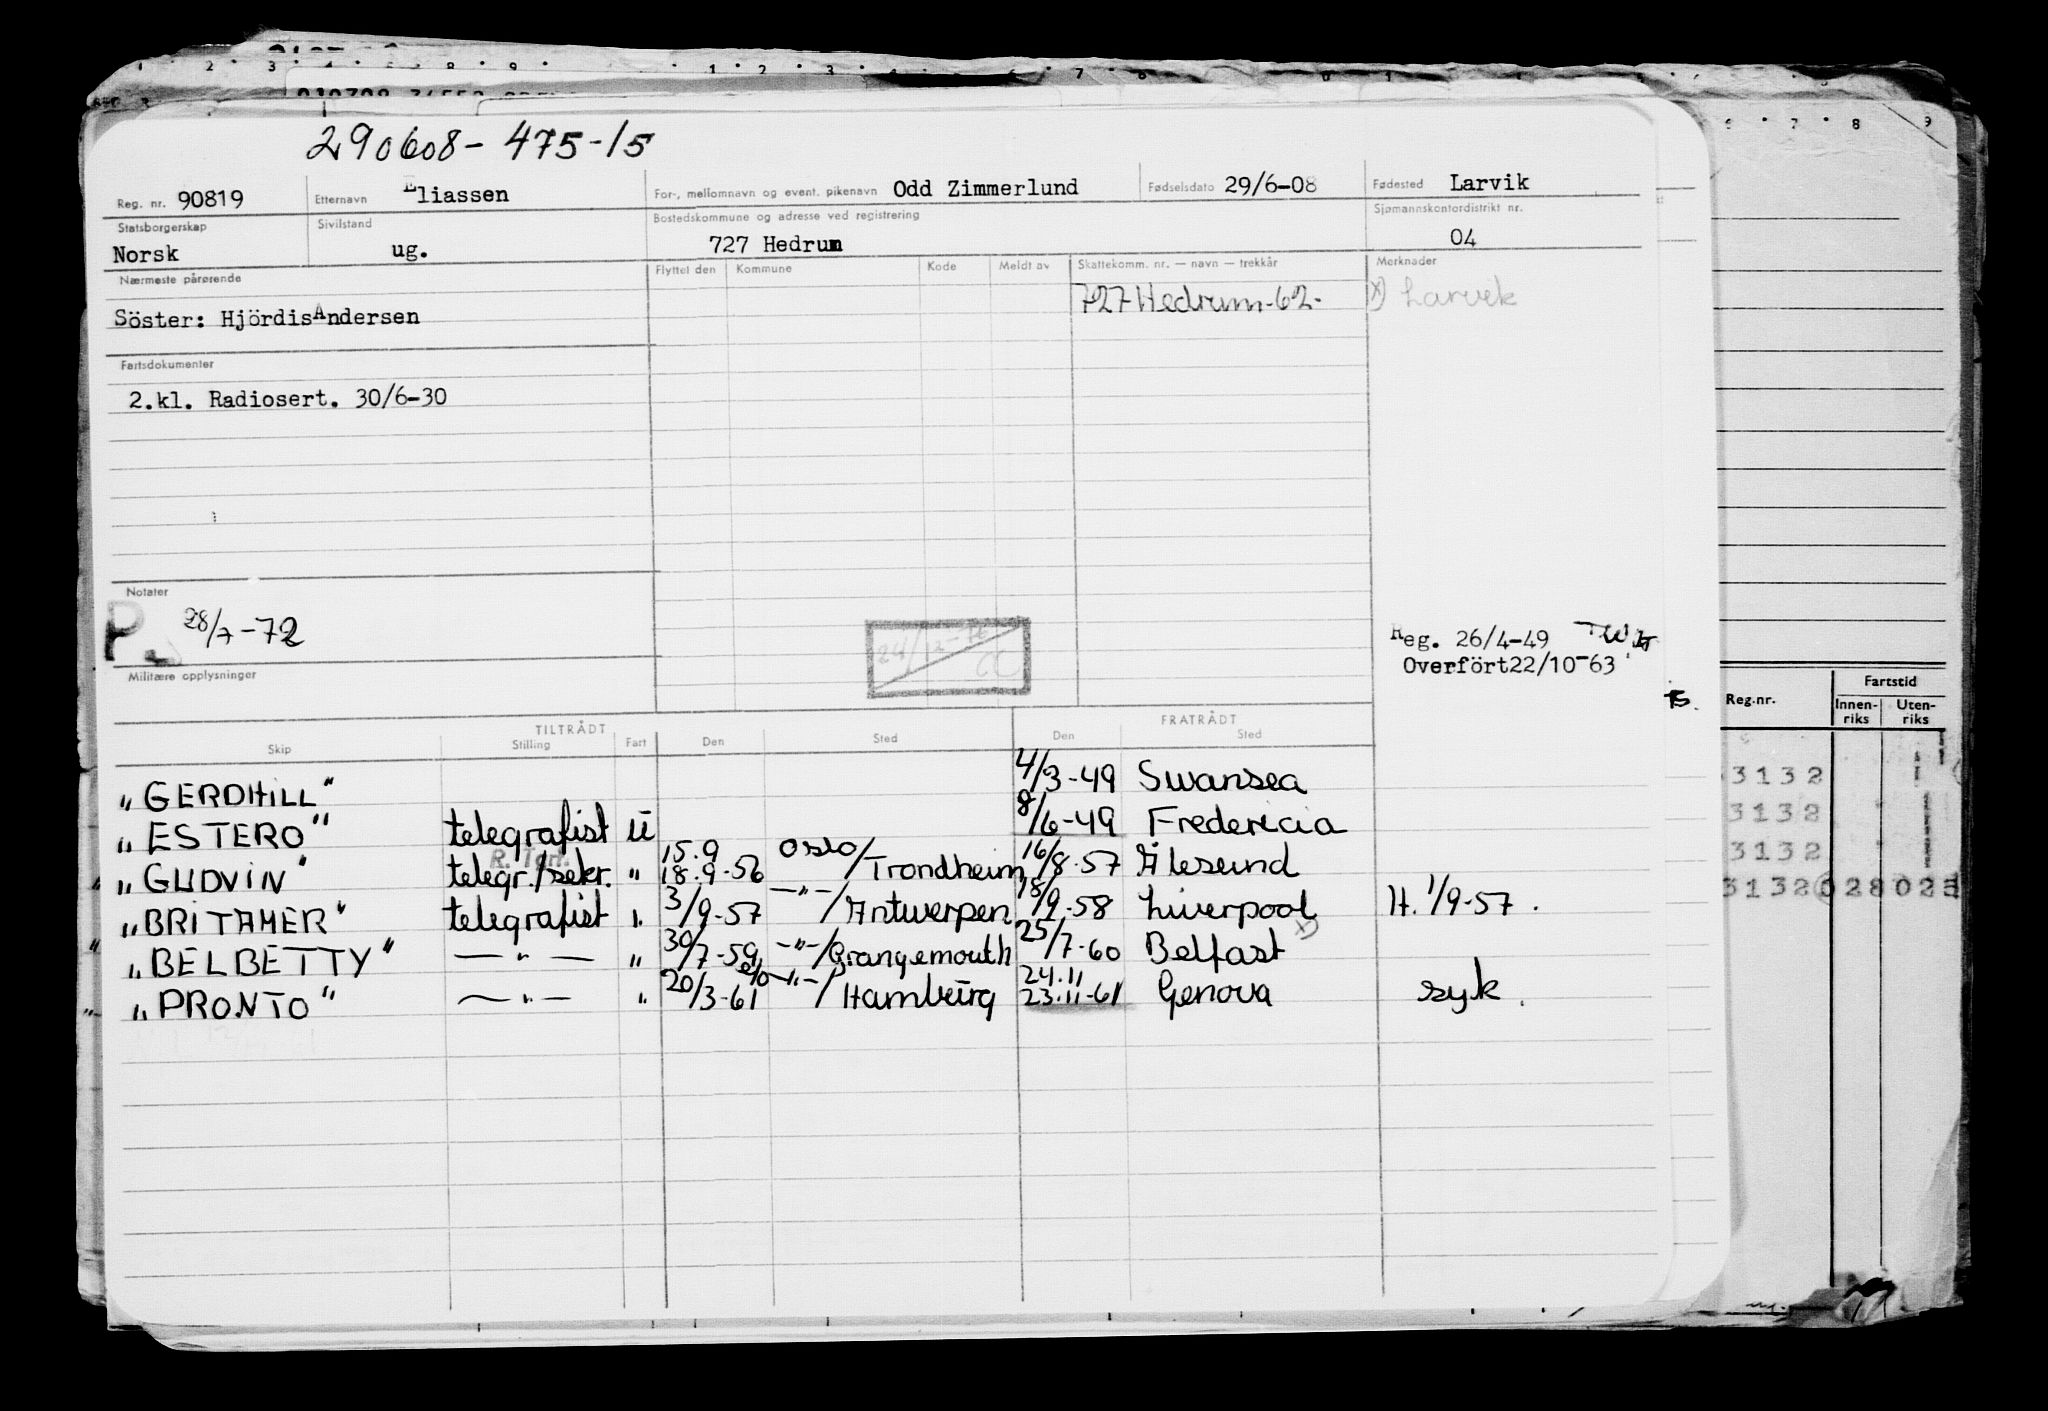 290608-475-15
Reg. nr. 90819 Etternavn Eliassen For-, mellomnavn og event. pikenavn Odd Zimmerlund Fødselsdato 29/6-08 Fødested Larvik
Statsborgerskap Sivilstand Bostedskommune og adresse ved registrering Sjømannskontordistrikt nr.
Norsk ug. 727 Hedrum 04
Nærmeste pårørende Flyttet den Kommune Kode Meldt av Skattekomm. nr. — navn — trekkår Merknader
727 Hedrum-62- x) Larvik
Söster: Hjördis Andersen
Fartsdokumenter
2.kl. Radiosert. 30/6-30
Notater
P. 28/7-72
Reg. 26/4-49
Overfört 22/10-63
Militære opplysninger
TILTRÅDT FRATRÅDT
Skip Stilling Fart Den Sted Den Sted
„GERDHILL" 4/3-49 Swansea
„ESTERO" telegrafist U 8/6-49 Fredericia
„GUDVIN" telegr./sekr. " 15.9 18.9-56 Oslo/Trondheim 16/8-57 Ålesund
„BRITAMER" telegrafist " 3/9-57 -"-/Antwerpen 18/9-58 Liverpool H. 1/9-57.
„BELBETTY" -"- " 30/7-59 -"-/Grangemouth 25/7-60 Belfast x)
„PRONTO" -"- " 20/3-61 -"-/Hamburg 24.11 23.11-61 Genova syk.
Reg.nr. Fartstid
Innen-riks Uten-riks
3132
3132
3132
3132 028 02